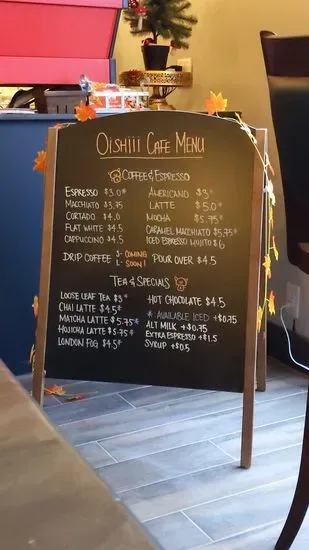 Oishiii Cafe Menu
Coffee & Espresso
Espresso $3.0*
Macchiato $3.75
Cortado $4.0
Flat White $4.5
Cappuccino $4.5
Americano $3*
Latte $5.0*
Mocha $5.75*
Caramel Macchiato $5.75*
Iced Espresso Mojito $6
Drip Coffee S- Coming
L- Soon!
Pour Over $4.5
Tea & Specials
Loose Leaf Tea $3*
Chai Latte $4.5*
Matcha Latte $5.75*
Hojicha Latte $5.75*
London Fog $4.5*
Hot Chocolate $4.5
* Available Iced +$0.75
Alt Milk +$0.75
Extra Espresso +$1.5
Syrup +$0.5